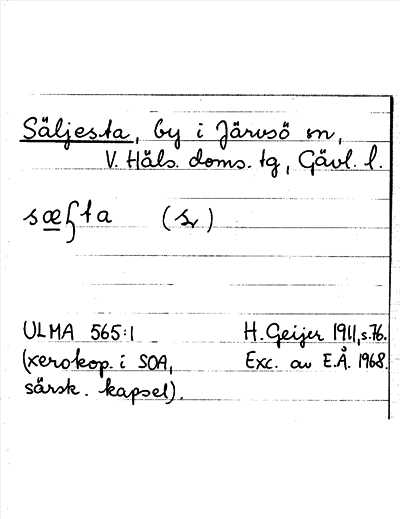 Säljesta, by i Järvsö sn,
V. Häls. doms. tg, Gävl. l.
ULMA 565:1 H. Geijer 1911, s. 76.
(xerokop. i SOA, Exc. av E.Å. 1968.
särsk. kapsel).